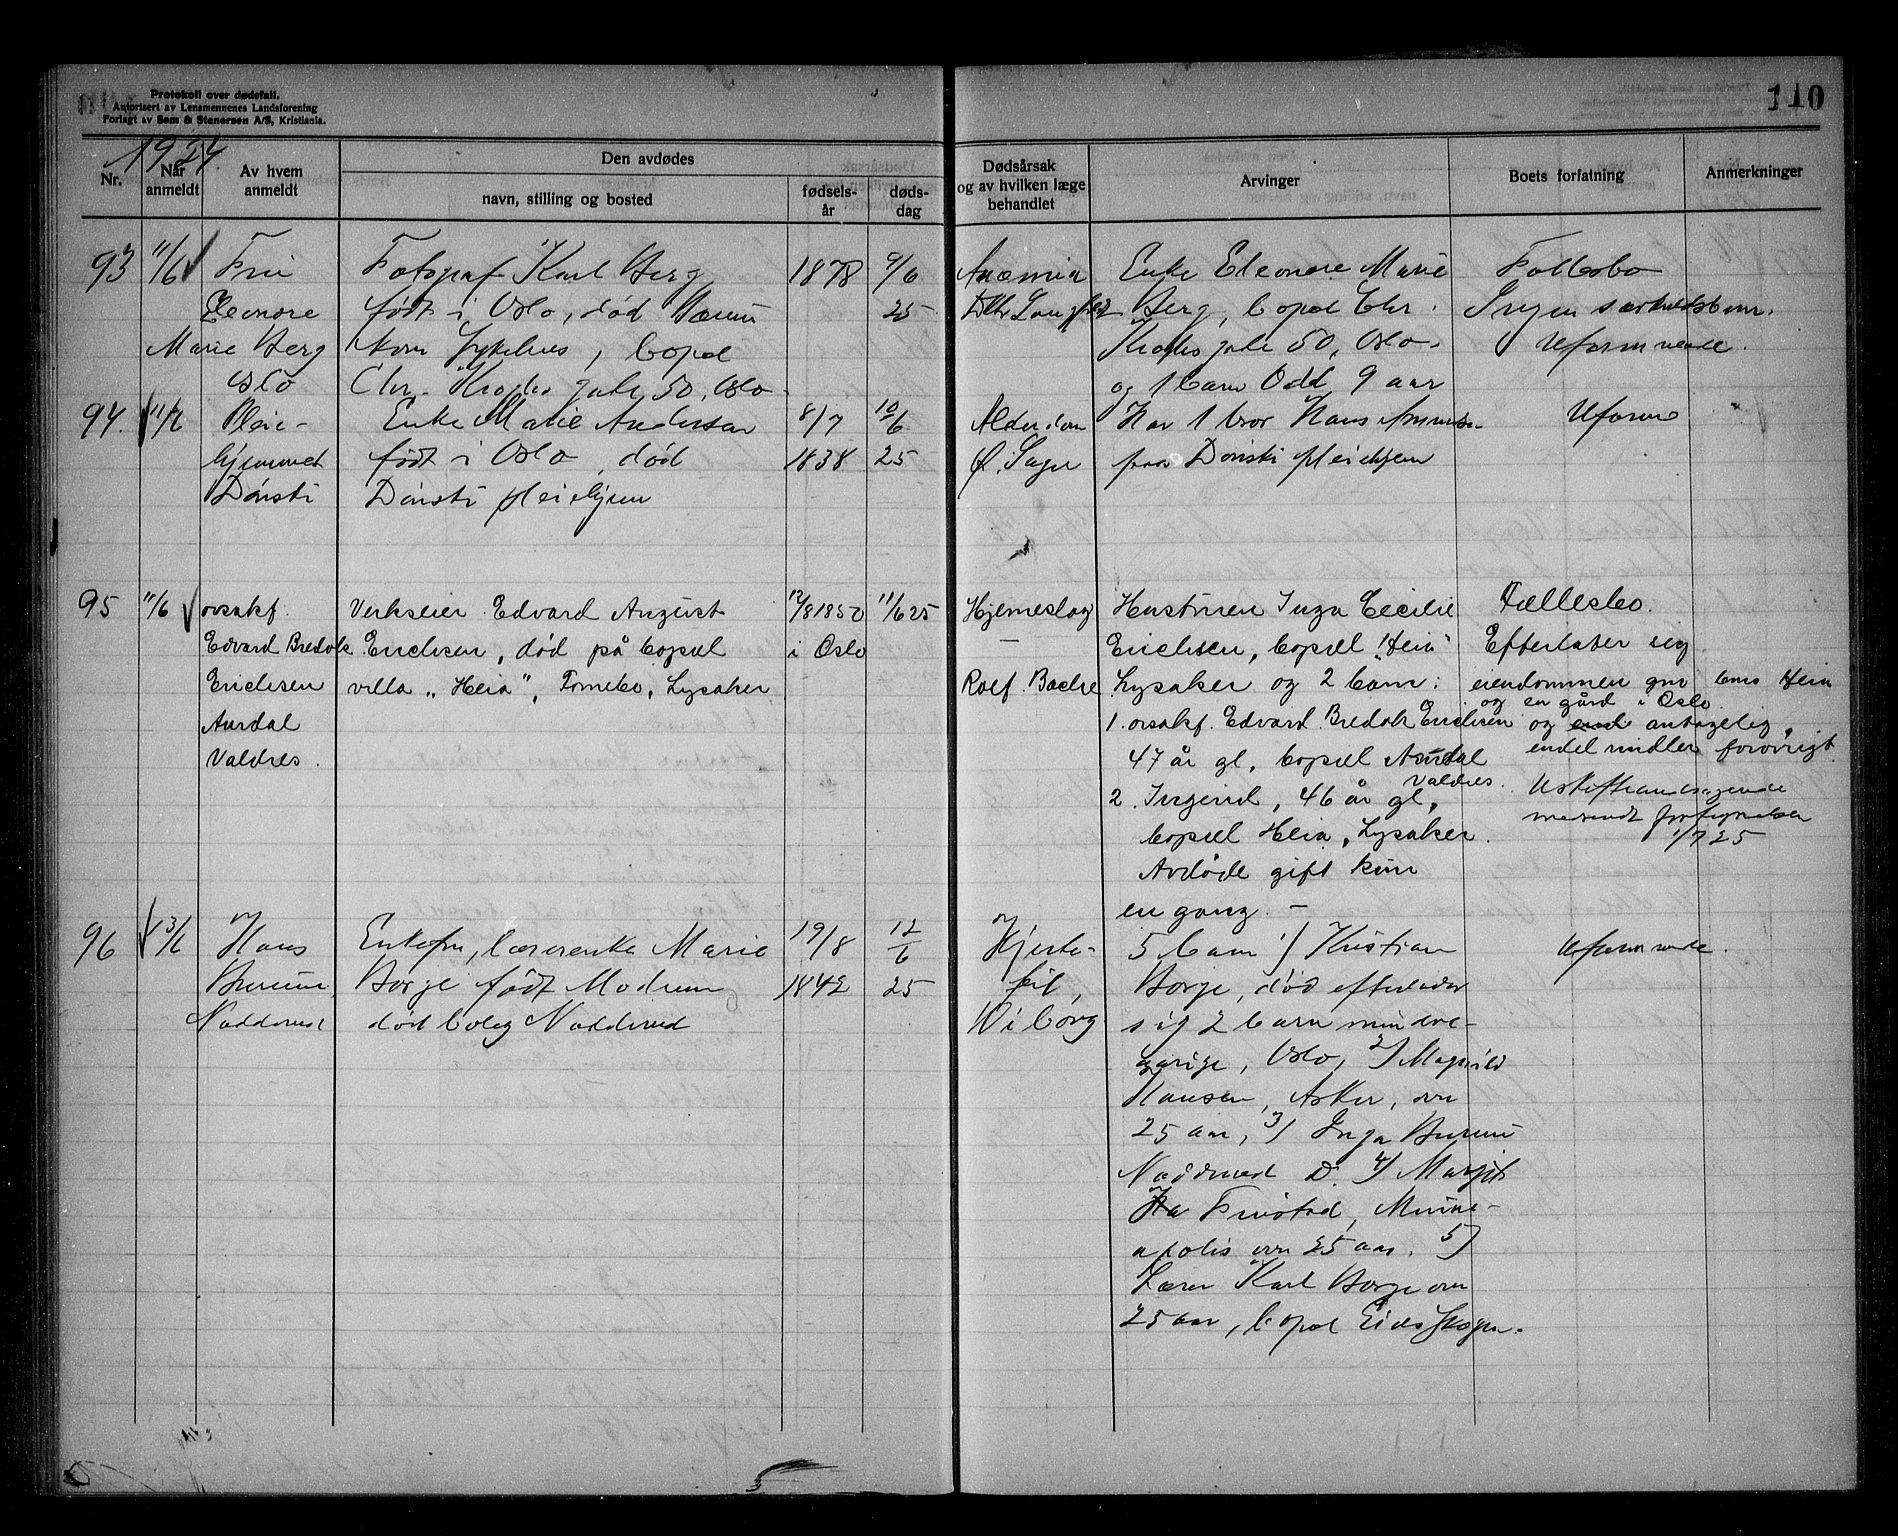 Protokoll over dødsfall.
Autorisert av Lensmennenes Landsforening
Forlagt av Sem & Stenersen A/S, Kristiania.
110
1924.
Nr.
Når anmeldt
Av hvem anmeldt
Den avdødes
navn, stilling og bosted
fødsels-år
døds-dag
Dødsårsak og av hvilken læge behandlet
Arvinger
Boets forfatning
Anmerkninger
93 11/6 Fru Fotograf Karl Berg 1878 9/6 Anæmia Enke Eleonore Marie Fællesbo
Eleonore født i Oslo, død Bærum 25 Berg, bopel Chr. Ingen særkuldsbarn.
Marie Berg kom Sykehus, bopel Kroghs gate 50, Oslo. Uformuende.
Oslo Chr. Kroghs gate 50, Oslo og 1 barn Odd 9 aar
94. 11/6 Pleie- Enke Marie Andersen 8/7 10/6 Alderdom Har 1 bror Hans Uformu
hjemmet født i Oslo, død 1838 25 paa Dønski pleiehjem
Dønski Dønski pleiehjem
95 11/6 orsakf. Verkseier Edvard August 12/8 1850 11/6 25 Hjerneslag Hustruen Inga Cecilie Fællesbo.
Edvard Bredok Erichsen, død på bopæl i Oslo — Erichsen, bopæl "Heia" Efterlater sig
Erichsen villa „Heia", Fornebo, Lysaker Rolf Bache Lysaker og 2 barn: eiendommen gnr bnr Heia
og en gård i Oslo.
Aurdal 1. orsakf. Edvard Bredok Erichsen og antagelig
Valdres. 47 år gl, bopæl Aurdal endel midler forøvrigt.
Valdres.
2. Ingerid, 46 år gl,
bopæl Heia, Lysaker. 1/7 25
Avdøde gift kun
en gang. —
96 13/6 Hans Enkefru, lærerenke Marie 19/8 12/6 Hjerte- 5 barn 1) Kristian Uformuende.
Burum Borge født Modum 1842 25 feil, Borge, død efterlader
Nadderud død bolig Nadderud Wiborg sig 2 barn mindre-
aarige, Oslo, 2) Magnild
Hansen, Asker, over
25 aar, 3) Inga Burum
Nadderud D. 4) Margit
Finstad, Minne-
apolis over 25 aar. 5)
Lærer Karl Borge over
25 aar, bopel Eidsskogen.